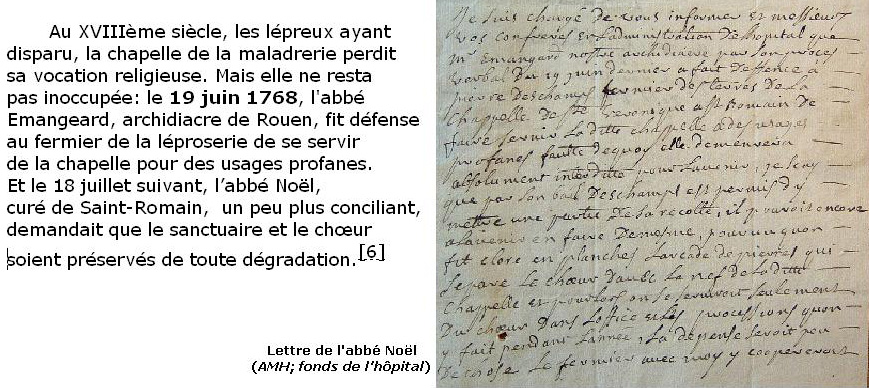 Au XVIIIème siècle, les lépreux ayant
disparu, la chapelle de la maladrerie perdit
sa vocation religieuse. Mais elle ne resta
pas inoccupée: le 19 juin 1768, l'abbé
Emangeard, archidiacre de Rouen, fit défense
au fermier de la léproserie de se servir
de la chapelle pour des usages profanes.
Et le 18 juillet suivant, l'abbé Noël,
curé de Saint-Romain, un peu plus conciliant,
demandait que le sanctuaire et le chœur
soient préservés de toute dégradation.[6]
Lettre de l'abbé Noël
(AMH; fonds de l'hôpital)
Je suis chargé de vous informer et messieurs
vos confreres en Ladministration De Lhopital que
Mr Emangard nostre archidiacre par son proces
verbal Du 19 juin dernier a fait Deffence à
pierre Deschamps fermier des terres De La
Chappelle De Ste veronique a St Romain De
faire servir La ditte chapelle a des usages
profanes faute Dequoy elle demeurera
absolument interditte pour Lavenir, je sçay
que par son bail Deschamps est permis dy
mettre une partie De La recolte, il pouroit encore
a Lavenir en faire De mesme, pourvu quon
fit clore en planches Larcade de pierres qui
separe Le chœur Davec La nef de La ditte
Chappelle et pour lors on se serviroit seulement
Du chœur Dans Loffice et Les processions quon
y fait pendant Lannée, La depense seroit peu
De chose Le fermier avec moy y coopereroit